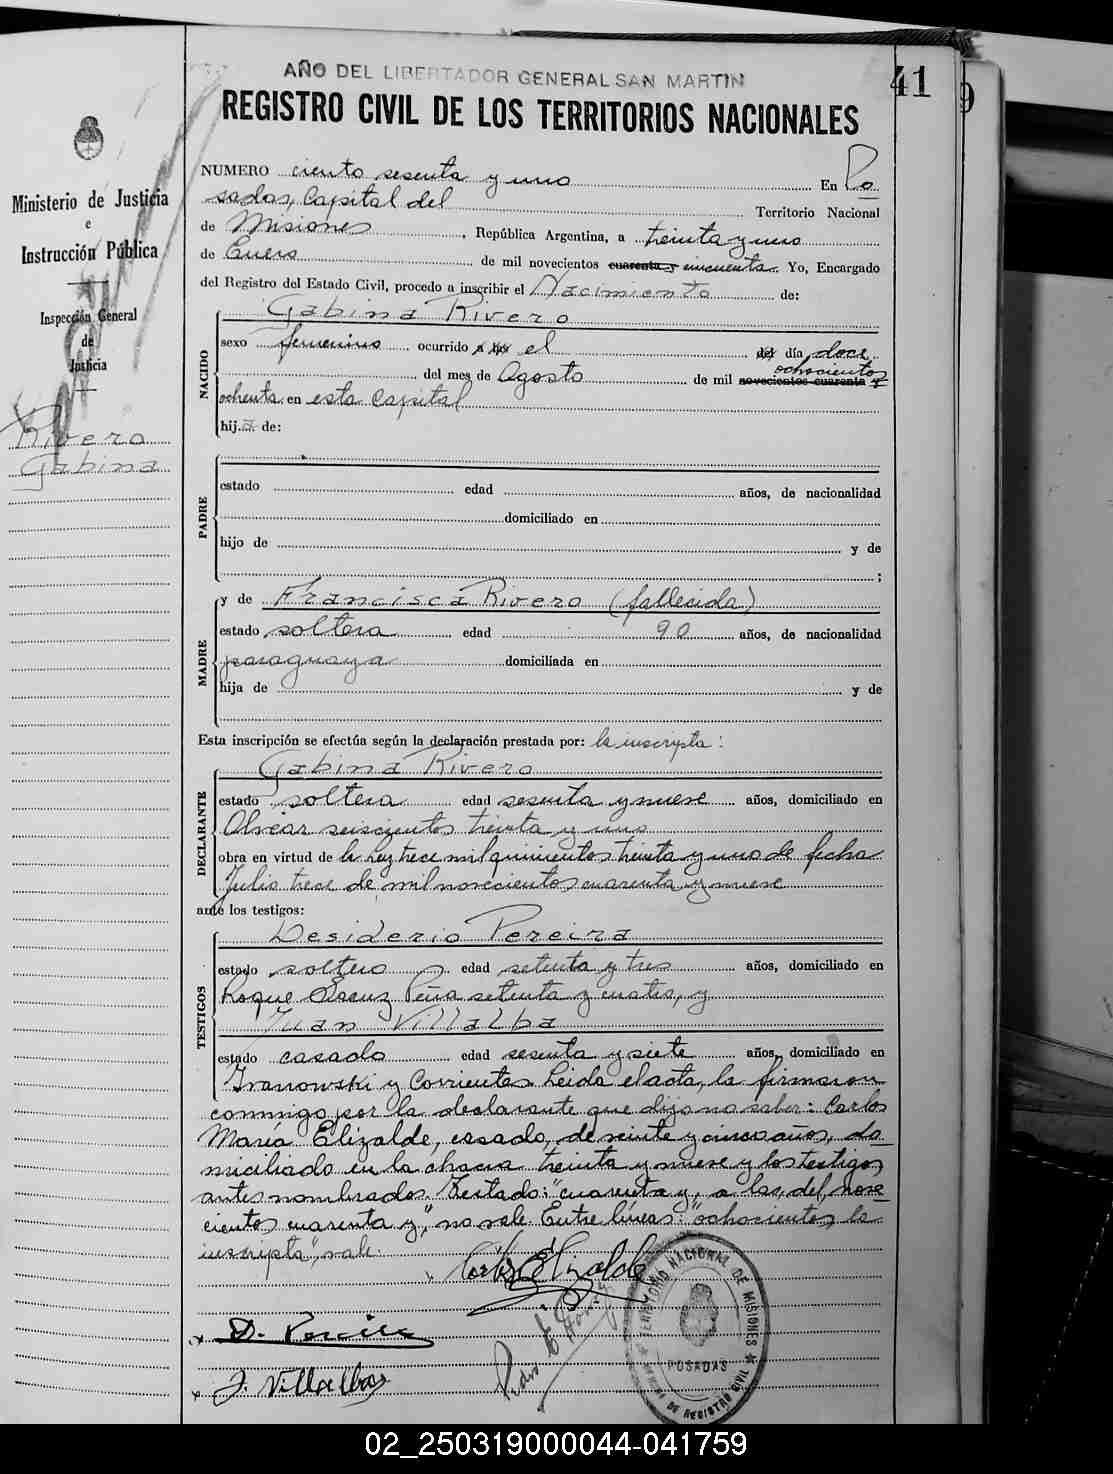 AÑO DEL LIBERTADOR GENERAL SAN MARTIN
41
9
REGISTRO CIVIL DE LOS TERRITORIOS NACIONALES
Ministerio de Justicia
e
Instrucción Pública
Inspección General
de
Justicia
Rivero
Gabina
NUMERO ciento sesenta y uno En Po
sadas, Capital del Territorio Nacional
de Misiones, República Argentina, a treinta y uno
de Enero de mil novecientos cuarenta y cincuenta. Yo, Encargado
del Registro del Estado Civil, procedo a inscribir el Nacimiento de:
Gabina Rivero
NACIDO
sexo femenino ocurrido a las el del día doce
ochocientos
del mes de Agosto de mil novecientos cuarenta y
ochenta en esta Capital
hija de:
PADRE
estado edad años, de nacionalidad
domiciliado en
hijo de y de
;
MADRE
y de Francisca Rivero (fallecida)
estado soltera edad 90 años, de nacionalidad
paraguaya domiciliada en
hija de y de
Esta inscripción se efectúa según la declaración prestada por: la inscripta:
Gabina Rivero
DECLARANTE
estado soltera edad sesenta y nueve años, domiciliado en
Alvear seiscientos treinta y uno
obra en virtud de la ley trece mil quinientos treinta y uno de fecha
Julio trece de mil novecientos cuarenta y nueve
ante los testigos:
Desiderio Pereira
TESTIGOS
estado soltero edad setenta y tres años, domiciliado en
Roque Saenz Peña setenta y cuatro, y
Juan Villalba
estado casado edad sesenta y siete años, domiciliado en
y Corrientes. Leida el acta, la firmaron
conmigo por la declarante que dijo no saber: Carlos
María Elizalde, casado, de veinte y cinco años, do
miciliado en la chacra treinta y nueve y los testigos
antes nombrados. Testado: "cuarenta y, a las, del, nove
cientos cuarenta y", no vale. Entre líneas: "ochocientos, la
inscripta", vale.
Carlos Elizalde
D. Pereira
J. Villalba
TERRITORIO NACIONAL DE MISIONES
POSADAS
DE REGISTRO CIVIL
02_250319000044-041759